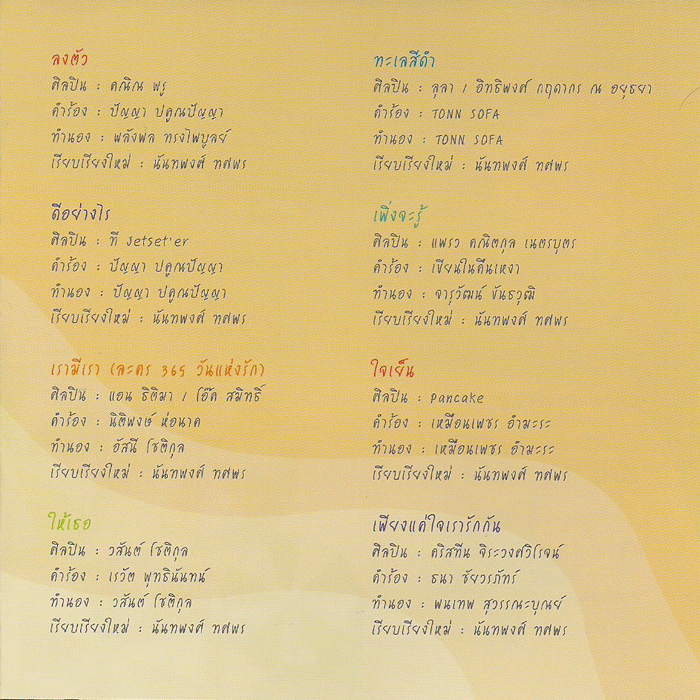 ลงตัว
ศิลปิน : คณิณ พรู
คำร้อง : ปัญญา ปคูณปัญญา
ทำนอง : พลังพล ทรงไพบูลย์
เรียบเรียงใหม่ : นันทพงศ์ ทศพร
ดีอย่างไร
ศิลปิน : ที Jetset'er
คำร้อง : ปัญญา ปคูณปัญญา
ทำนอง : ปัญญา ปคูณปัญญา
เรียบเรียงใหม่ : นันทพงศ์ ทศพร
เรามีเรา (ละคร 365 วันแห่งรัก)
ศิลปิน : แอน ธิติมา / โอ๊ด สมิทธิ์
คำร้อง : นิติพงษ์ ห่อนาค
ทำนอง : อัสนี โชติกุล
เรียบเรียงใหม่ : นันทพงศ์ ทศพร
ให้เธอ
ศิลปิน : วสันต์ โชติกุล
คำร้อง : เรวัต พุทธินันทน์
ทำนอง : วสันต์ โชติกุล
เรียบเรียงใหม่ : นันทพงศ์ ทศพร
ทะเลสีดำ
ศิลปิน : ลุลา / อิทธิพงศ์ กฤดากร ณ อยุธยา
คำร้อง : TONN SOFA
ทำนอง : TONN SOFA
เรียบเรียงใหม่ : นันทพงศ์ ทศพร
เพิ่งจะรู้
ศิลปิน : แพรว คณิตกุล เนตรบุตร
คำร้อง : เขียนในคืนเหงา
ทำนอง : จารุวัฒน์ ขันธวุฒิ
เรียบเรียงใหม่ : นันทพงศ์ ทศพร
ใจเย็น
ศิลปิน : Pancake
คำร้อง : เหมือนเพชร อำมะระ
ทำนอง : เหมือนเพชร อำมะระ
เรียบเรียงใหม่ : นันทพงศ์ ทศพร
เพียงแค่ใจเรารักกัน
ศิลปิน : คริสทีน จิระวงศวิโรจน์
คำร้อง : ธนา ชัยวรภัทร์
ทำนอง : พนเทพ สุวรรณะบุณย์
เรียบเรียงใหม่ : นันทพงศ์ ทศพร